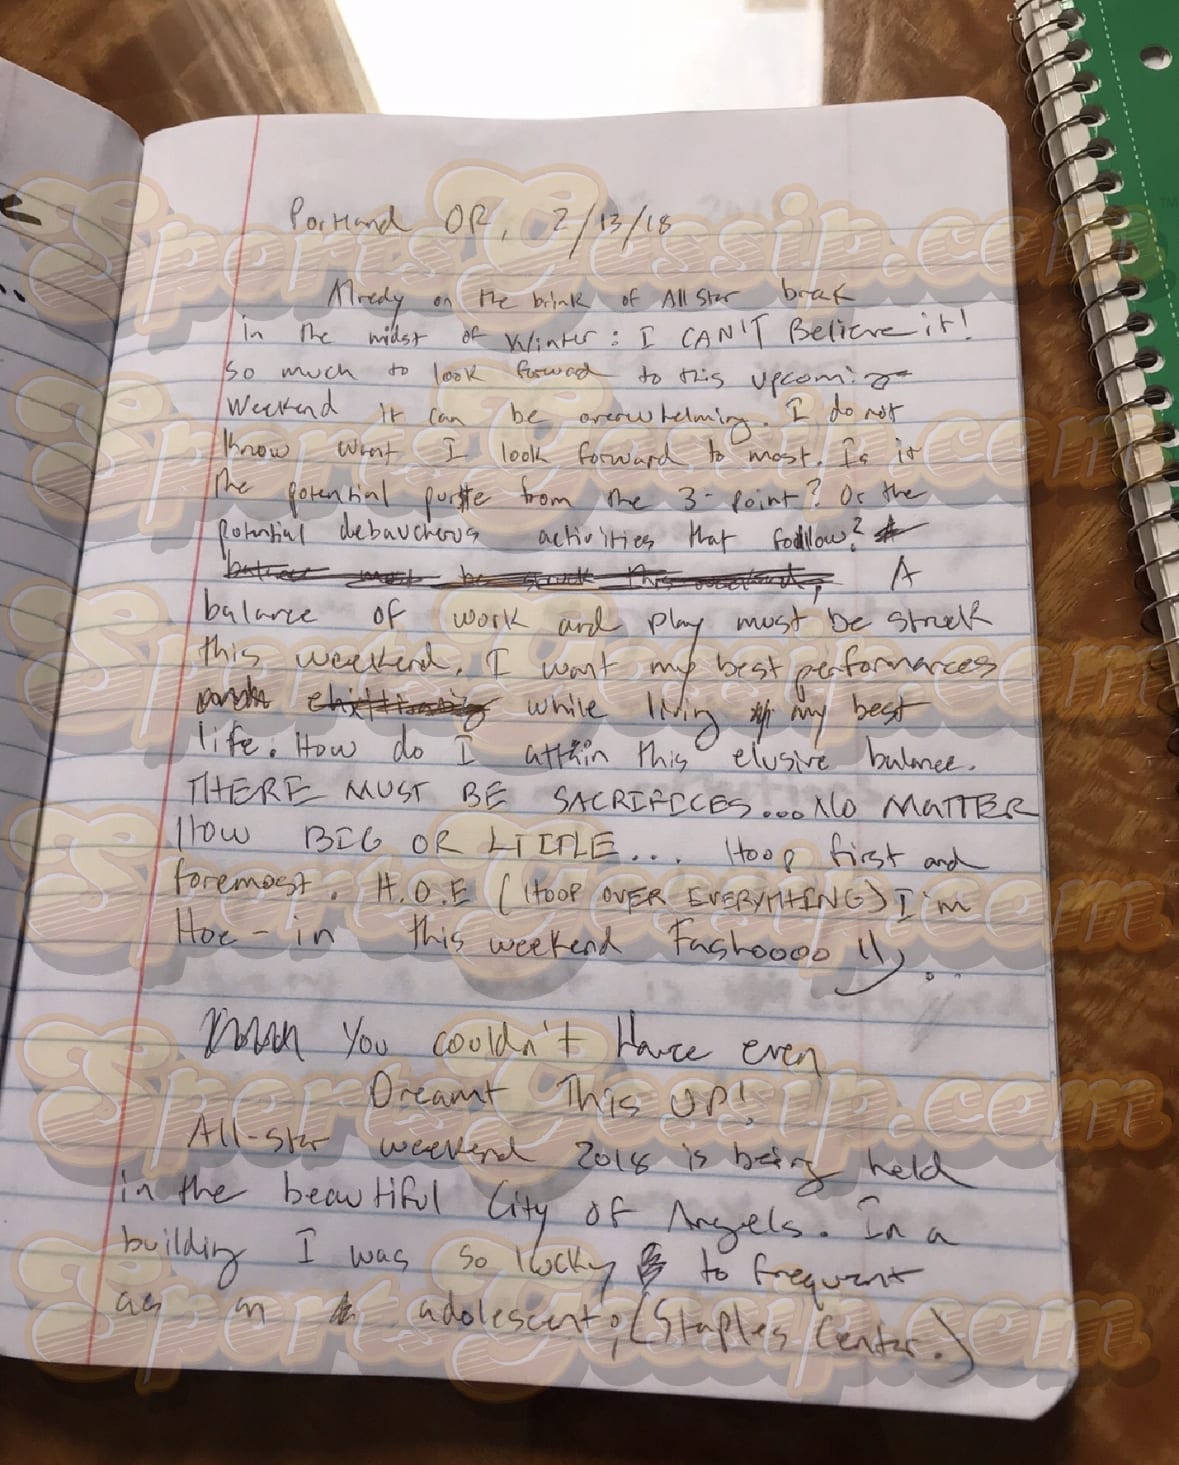 Portland OR, 2/13/18
Alredy on the brink of All Star break
in the midst of Winter: I CAN'T Believe it!
So much to look forward to this upcoming
Weekend it can be overwhelming. I do not
know what I look forward to most. Is it
the potential purse from the 3-point? Or the
potential debaucherous activities that follow?
balance must be struck this weekend, A
balance of work and play must be struck
this weekend. I want my best performances
while living my best
life. How do I attain this elusive balance.
THERE MUST BE SACRIFICES...NO MATTER
HOW BIG OR LITTLE... Hoop first and
foremost. H.O.E (HOOP OVER EVERYTHING) I'm
Hoe-in this weekend Fashoooo
You couldn't Have even
Dreamt This UP!
All-star weekend 2018 is being held
in the beautiful City of Angels. In a
building I was so lucky to frequent
as an adolescent; (Staples Center.)
SportsGossip.com